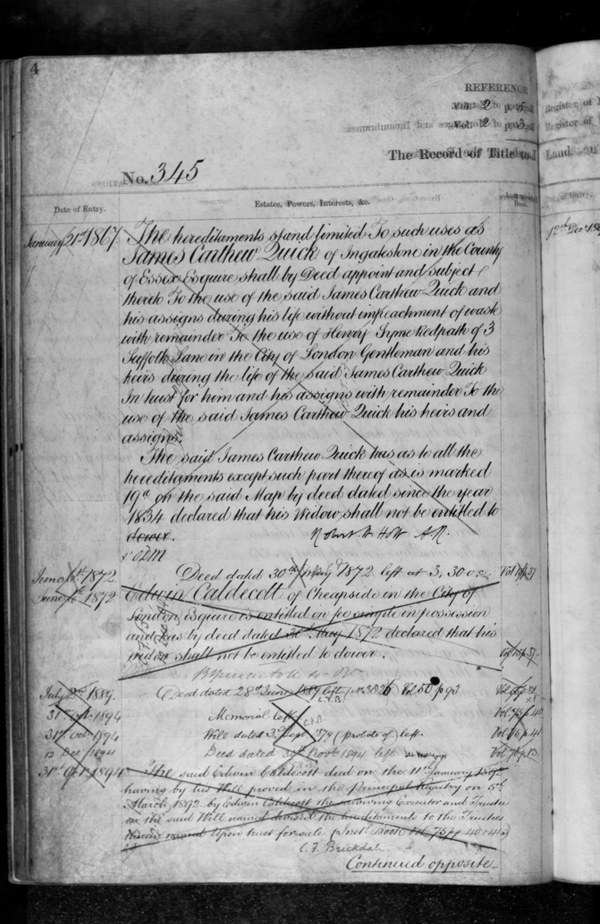 4
REFERENCE
Vol. 2 p. 5
Vol. 2 p. 3
The Record of Title to Land
No. 345
Date of Entry.
Estates, Powers, Interests, &c.
January 21st 1867
The hereditaments stand limited To such uses as
James Carthew Quick of Ingatestone in the County
of Essex Esquire shall by Deed appoint and subject
thereto To the use of the said James Carthew Quick and
his assigns during his life without impeachment of waste
with remainder To the use of Henry Syme Redpath of 3
Suffolk Lane in the City of London Gentleman and his
heirs during the life of the said James Carthew Quick
In trust for him and his assigns with remainder To the
use of the said James Carthew Quick his heirs and
assigns.
The said James Carthew Quick has as to all the
hereditaments except such part thereof as is marked
19a on the said Map by deed dated since the year
1834 declared that his Widow shall not be entitled to
dower.
Robert H Holt A.R.
June 1872
Deed dated 30th May 1872 left at 3,30 o.c.
June 1872
Edwin Caldecott of Cheapside in the City of
London Esquire is entitled in fee simple in possession
and has by deed dated 30th May 1872 declared that his
widow shall not be entitled to dower.
July 1889.
Deed dated 28th June 1889 left Vol 50 p 93
31 1894
Memorial left
31st Oct 1894
Will dated 3rd Sept 1879 (probate of) left.
12 Dec 1894
Deed dated 30th Novr 1894 left
31st Oct 1894
The said Edwin Caldecott died on the 11th January 1892
having by his Will proved in the Principal Registry on 5th
March 1892 by Edwin Caldecott the surviving Executor and Trustee
in the said Will named devised the hereditaments to the Trustees
therein named Upon trust for sale
C. F. Brickdale
Continued opposite